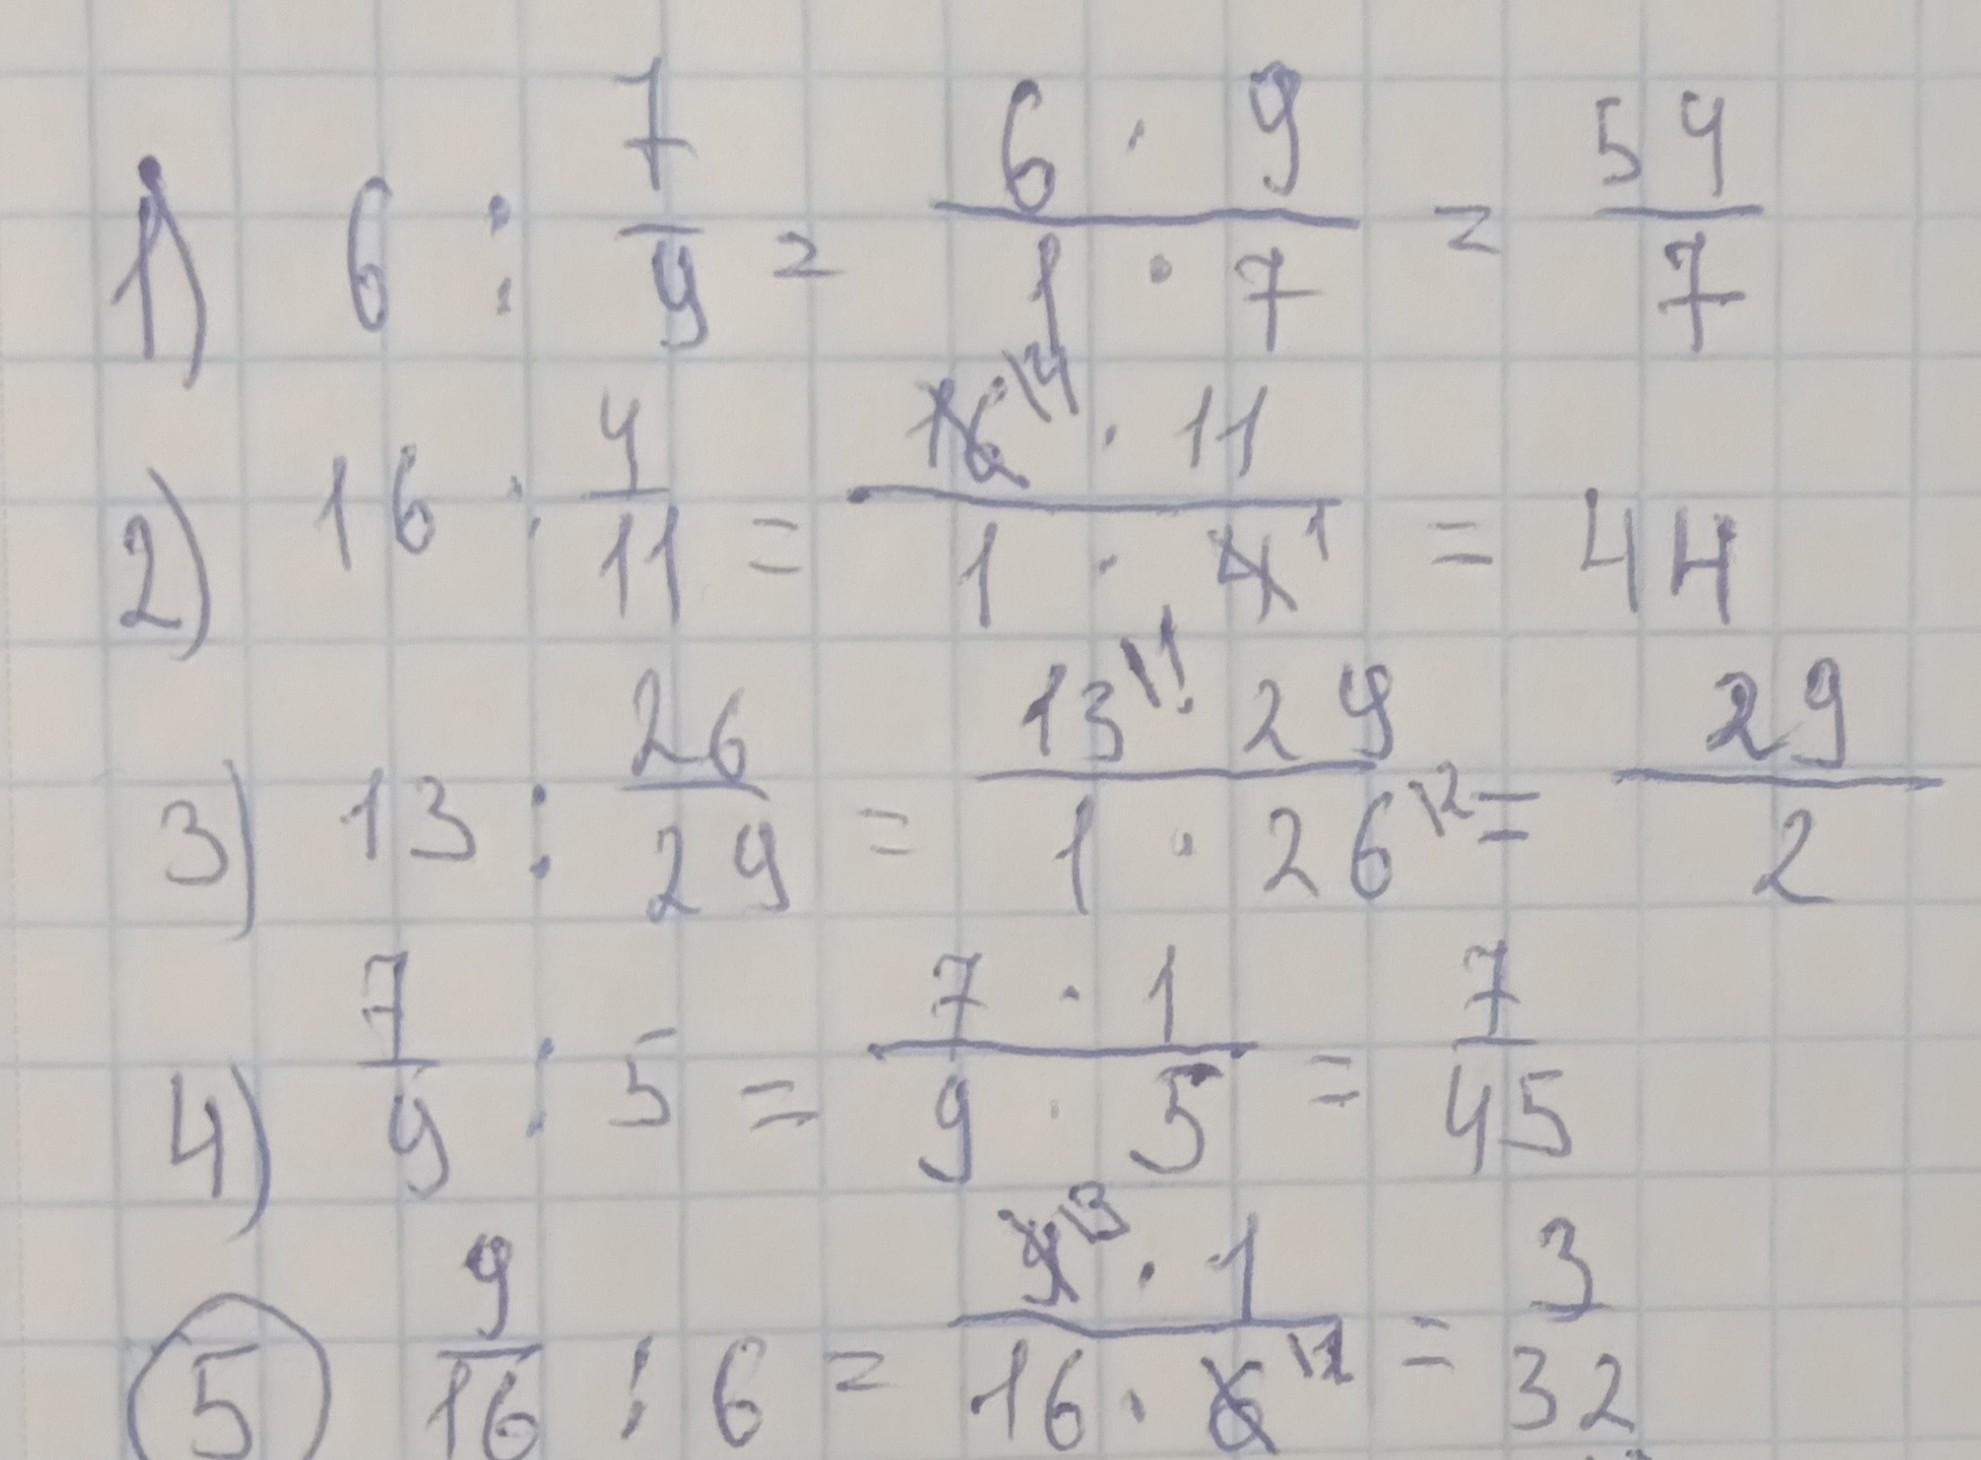 1) 6 : 7/9 = (6 · 9)/(1 · 7) = 54/7
2) 16 : 4/11 = (16\4 · 11)/(1 · 4\1) = 44
3) 13 : 26/29 = (13\1 · 29)/(1 · 26\2) = 29/2
4) 7/9 : 5 = (7 · 1)/(9 · 5) = 7/45
5 9/16 : 6 = (9\3 · 1)/(16 · 6\2) = 3/32